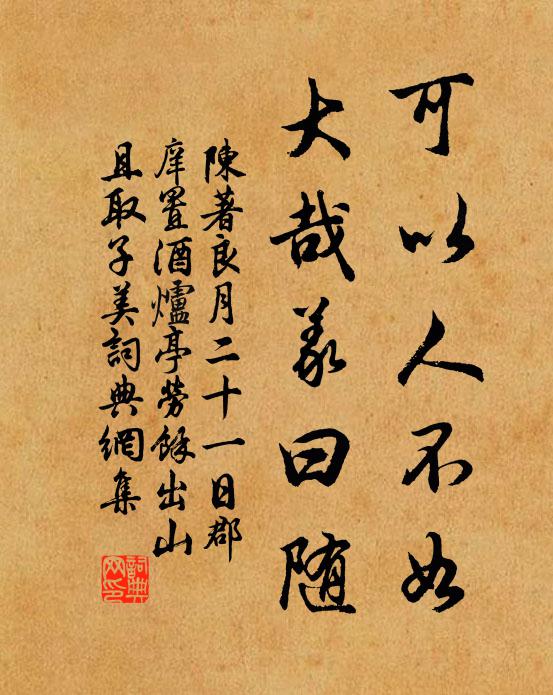 可以人不如
大哉義曰随
陳著良月二十一日郡
庠置酒爐亭勞餘出山
且取子美詞典網集
詞典网印